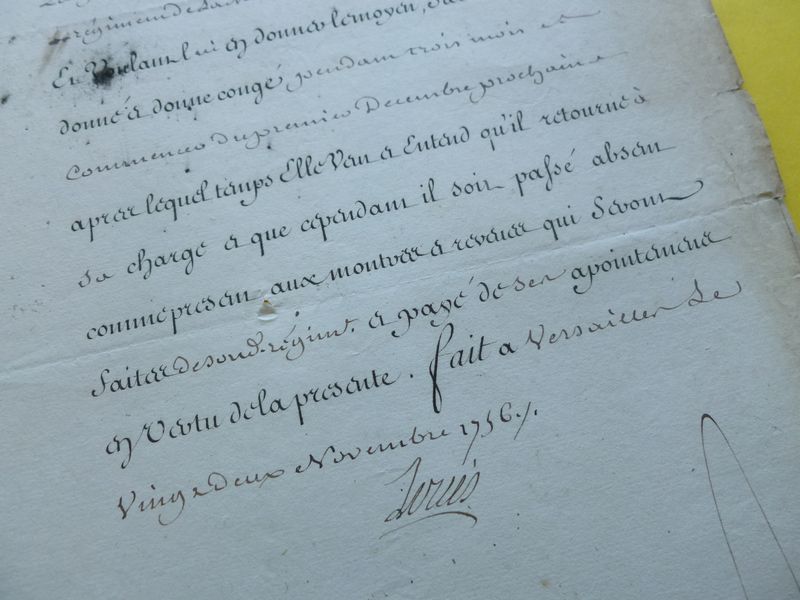 Regiment de
Et Voulant lui en donner le moyen, Sa
donné et donne congé pendant trois mois et
commencer du premier Decembre prochain
aprèr lequel temps Elle Veut et Entend qu'il retourne à
sa charge et que cependant il soit passé absent
comme present aux montrer et revuer qui Seront
faiter de sond. régim.t et payé de ser apointemens
en Vertu de la presente. fait a Versailler Le
Vingt deux Novembre 1756./.
Louis